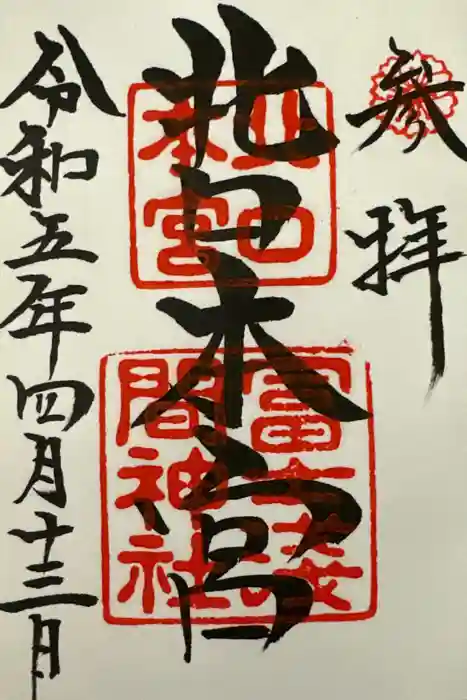 参拝
北口本宮
北口
本宮
冨士浅
間神社
令和五年四月十三日